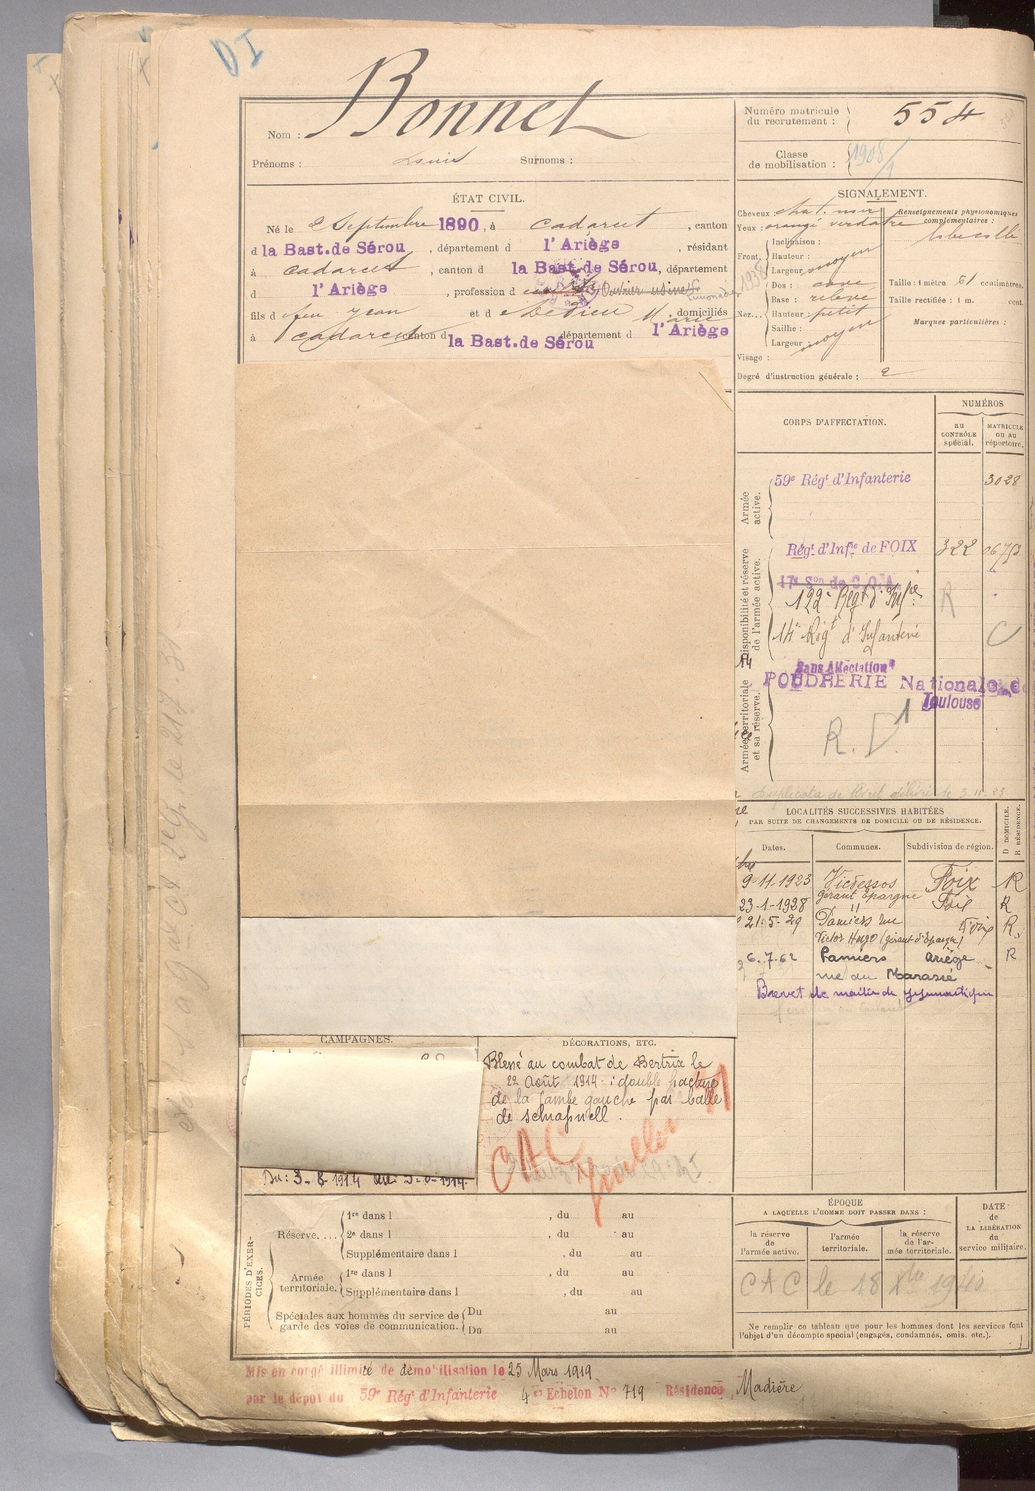 Bonnet
Nom :
Prénoms : Louis Surnoms :
Numéro matricule du recrutement : 554
Classe de mobilisation : 1908/1
ÉTAT CIVIL.
Né le 2 Septembre 1890, à Cadarcet, canton
d la Bast. de Sérou, département d l'Ariège, résidant
à Cadarcet, canton d la Bast. de Sérou, département
d l'Ariège, profession d
fils d feu Jean et d Marie domiciliés
à Cadarcet canton d la Bast. de Sérou département d l'Ariège
SIGNALEMENT.
Cheveux : chat. noir
Yeux : orangé verdâtre
Front,
Inclinaison :
Hauteur :
Largeur moyen
Nez...
Dos : cave
Base : relevé
Hauteur : petit
Saillie :
Largeur : moyen
Visage :
Renseignements physionomiques complémentaires :
Taille : 1 mètre 61 centimètres
Taille rectifiée : 1 m. cent.
Marques particulières :
Degré d'instruction générale : 2
CORPS D'AFFECTATION.
NUMÉROS
au CONTRÔLE spécial.
MATRICULE OU AU répertoire.
Armée active.
59e Régt d'Infanterie 3028
Disponibilité et réserve de l'armée active.
Régt d'Infie de FOIX 322
122e Régt d'Infie R
14e Régt d'Infanterie C
Armée territoriale et sa réserve.
Sans Affectation
POUDRERIE Nationale de
Toulouse
R. D 1
LOCALITÉS SUCCESSIVES HABITÉES
PAR SUITE DE CHANGEMENTS DE DOMICILE OU DE RÉSIDENCE.
Dates. Communes. Subdivision de région. D DOMICILE. R RÉSIDENCE.
9-11-1923 Vicdessos Foix R
gérant Epargne
23-1-1928 " Foix R
21-5-29 Pamiers rue Foix R.
Victor Hugo (gérant d'Epargne)
6.7.62 Pamiers Ariège R
rue du
Brevet de maître de gymnastique
CAMPAGNES.
DÉCORATIONS, ETC.
Blessé au combat de Bertrix le
22 Août 1914 : double fracture
de la jambe gauche par balle
de schrapnell.
CAC
Du : 3-8-1914 au
PÉRIODES D'EXERCICES.
Réserve....
1re dans l , du au
2e dans l , du au
Supplémentaire dans l , du au
Armée territoriale.
1re dans l , du au
Supplémentaire dans l , du au
Spéciales aux hommes du service de garde des voies de communication.
Du au
Du au
ÉPOQUE
A LAQUELLE L'HOMME DOIT PASSER DANS :
la réserve de l'armée active.
l'armée territoriale.
la réserve de l'armée territoriale.
DATE de LA LIBÉRATION du service militaire.
CAC le 18 Xbre 1940
Ne remplir ce tableau que pour les hommes dont les services font
l'objet d'un décompte spécial (engagés, condamnés, omis, etc.).
Mis en congé illimité de démobilisation le 25 Mars 1919.
par le dépôt du 59e Régt d'Infanterie 4e Echelon No 719 Résidence, Madière